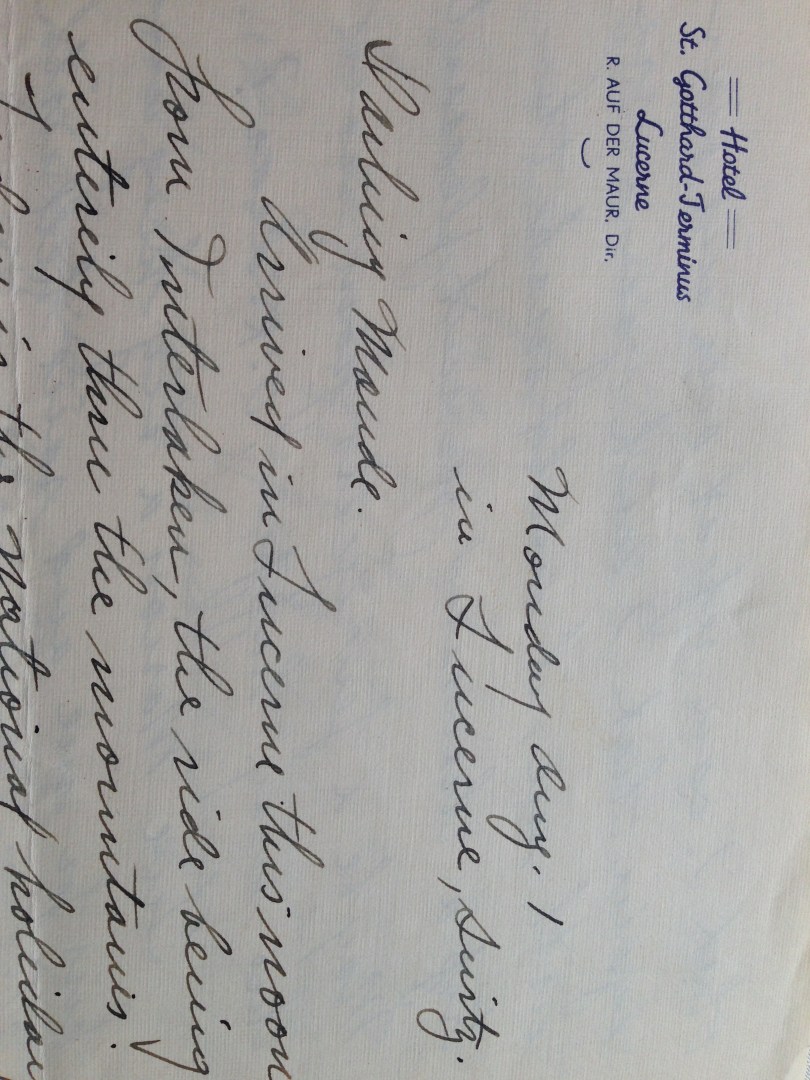 Hotel
St. Gotthard-Terminus
Lucerne
R. AUF DER MAUR. Dir.
Monday Aug. 1
in Lucerne, Switz.
Darling Maude.
Arrived in Lucerne this noon
from Interlaken, the ride being
entirely thru the mountains.
is the national holiday